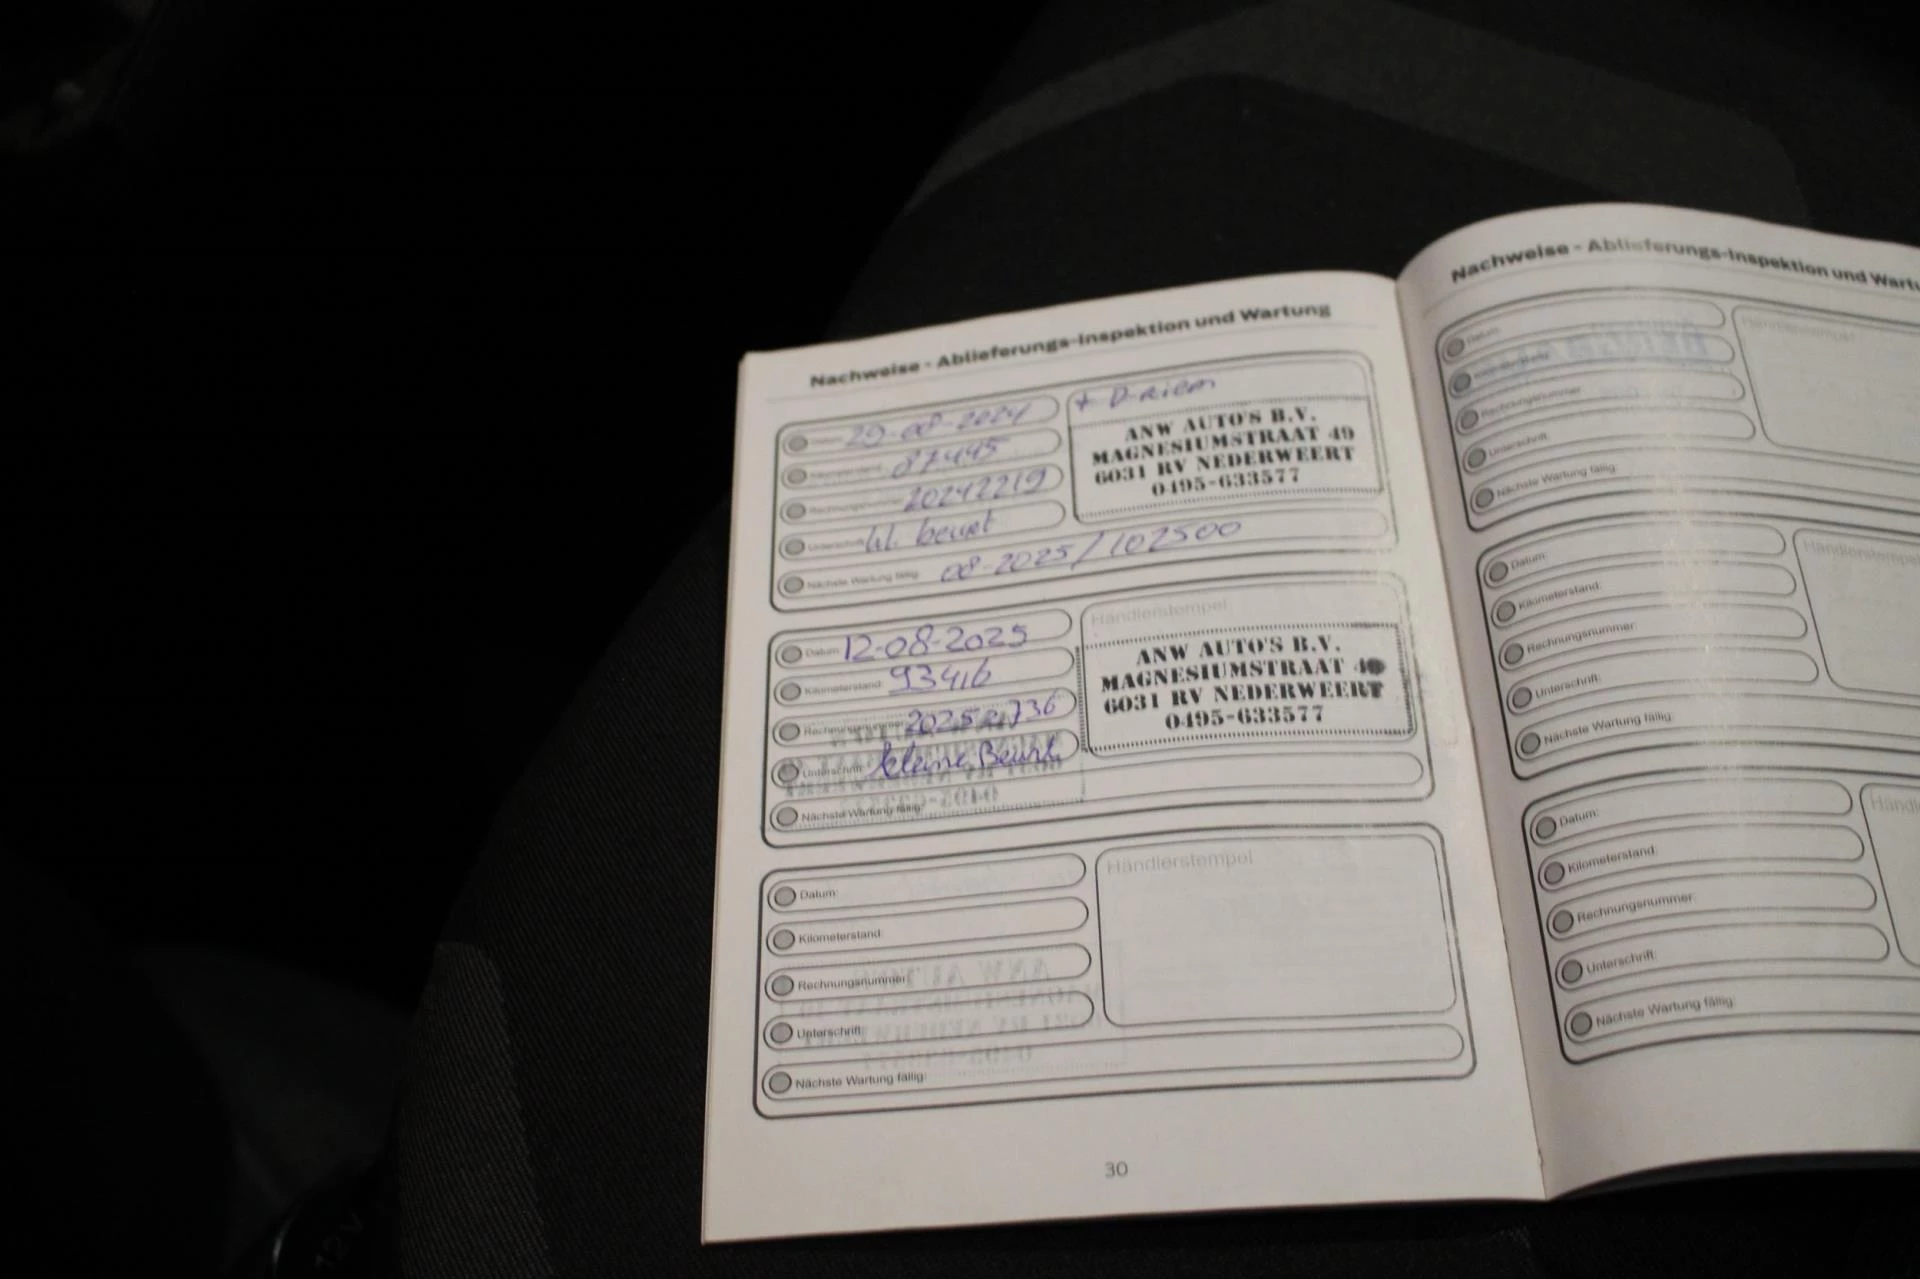 Nachweise - Ablieferungs-Inspektion und Wartung
29-08-2024
87445
20242219
kl. beurt
Nächste Wartung fällig: 08-2025/102500
+ D-riem
ANW AUTO'S B.V.
MAGNESIUMSTRAAT 49
6031 RV NEDERWEERT
0495-633577
Datum: 12-08-2025
Kilometerstand: 93416
Rechnungsnummer:
Unterschrift: kleine Beurt
Nächste Wartung fällig:
Händlerstempel
ANW AUTO'S B.V.
MAGNESIUMSTRAAT
6031 RV NEDERWEERT
0495-633577
Datum:
Kilometerstand:
Rechnungsnummer:
Unterschrift:
Nächste Wartung fällig:
Händlerstempel
30
Nachweise - Ablieferungs-Inspektion und
Datum:
Rechnungsnummer:
Unterschrift:
Nächste Wartung fällig:
Händlerstempel
Datum:
Kilometerstand:
Rechnungsnummer:
Unterschrift:
Nächste Wartung fällig:
Händlerstempel
Datum:
Kilometerstand:
Rechnungsnummer:
Unterschrift:
Nächste Wartung fällig: